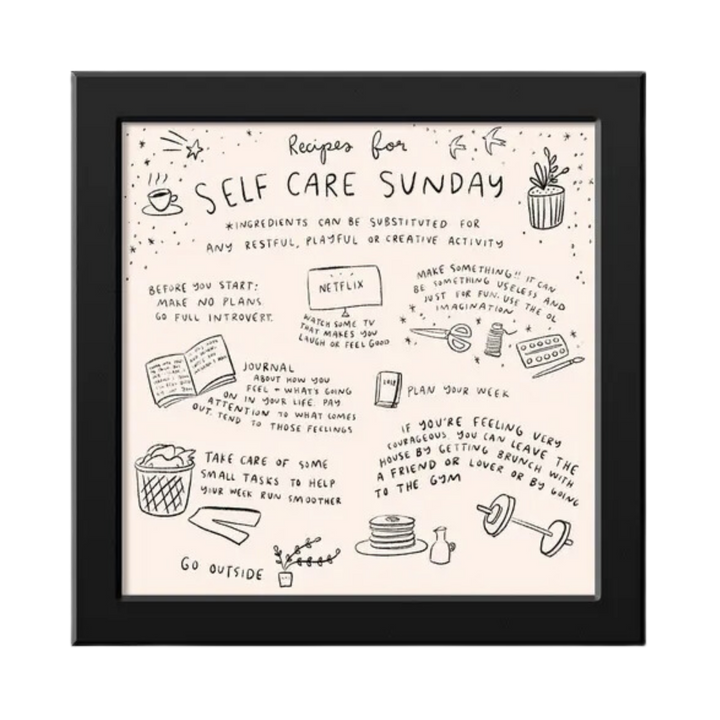 Recipes for
SELF CARE SUNDAY
*INGREDIENTS CAN BE SUBSTITUTED FOR
ANY RESTFUL, PLAYFUL OR CREATIVE ACTIVITY
BEFORE YOU START:
MAKE NO PLANS.
GO FULL INTROVERT.
NETFLIX
WATCH SOME TV
THAT MAKES YOU
LAUGH OR FEEL GOOD
MAKE SOMETHING!! IT CAN
BE SOMETHING USELESS AND
JUST FOR FUN. USE THE OL
IMAGINATION
JOURNAL
ABOUT HOW YOU
FEEL + WHAT'S GOING
ON IN YOUR LIFE. PAY
ATTENTION TO WHAT COMES
OUT. TEND TO THOSE FEELINGS
PLAN YOUR WEEK
TAKE CARE OF SOME
SMALL TASKS TO HELP
YOUR WEEK RUN SMOOTHER
IF YOU'RE FEELING VERY
COURAGEOUS, YOU CAN LEAVE THE
HOUSE BY GETTING BRUNCH WITH
A FRIEND OR LOVER OR BY GOING
TO THE GYM
GO OUTSIDE